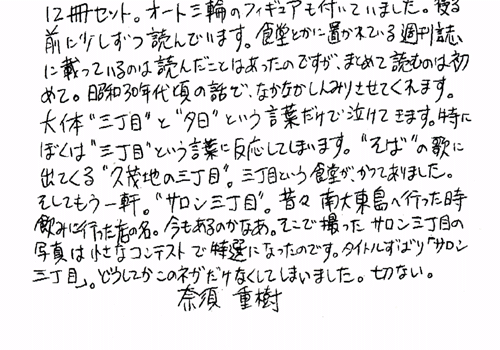 12冊セット。オート三輪のフィギュアも付いていました。寝る
前に少しずつ読んでいます。食堂とかに置かれている週刊誌
に載っているのは読んだことはあったのですが、まとめて読むのは初
めて。昭和30年代頃の話で、なかなかしんみりさせてくれます。
大体"三丁目"と"夕日"という言葉だけで泣けてきます。特に
ぼくは"三丁目"という言葉に反応してしまいます。"そば"の歌に
出てくる"久茂地の三丁目"。三丁目という食堂が、かつてありました。
そしてもう一軒。"サロン三丁目"。昔々南大東島へ行った時
飲みに行った店の名。今もあるのかなあ。そこで撮ったサロン三丁目の
写真は小さなコンテストで特選になったのです。タイトルずばり「サロン
三丁目」。どうしてかこのネガだけなくしてしまいました。切ない。
奈須 重樹